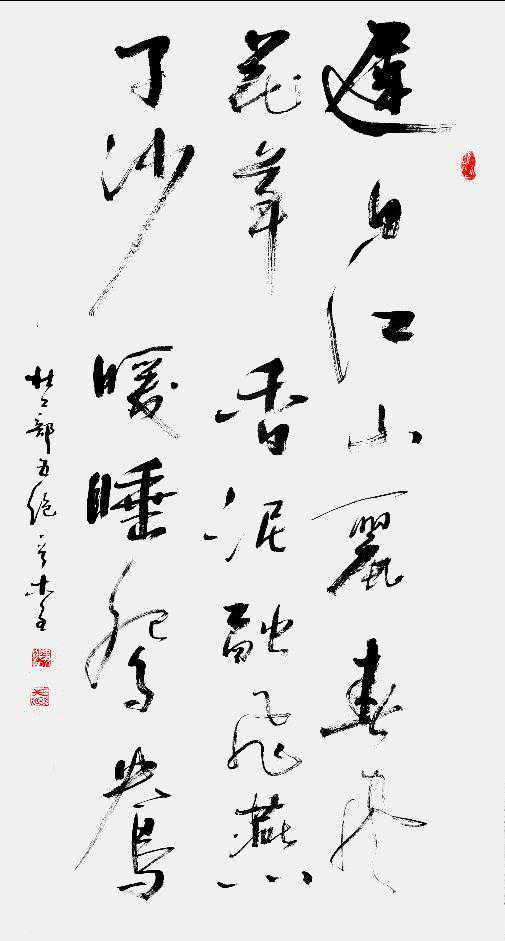 遲日江山麗春風
花草香泥融飛燕
子沙暖睡鴛鴦
杜工部五絕